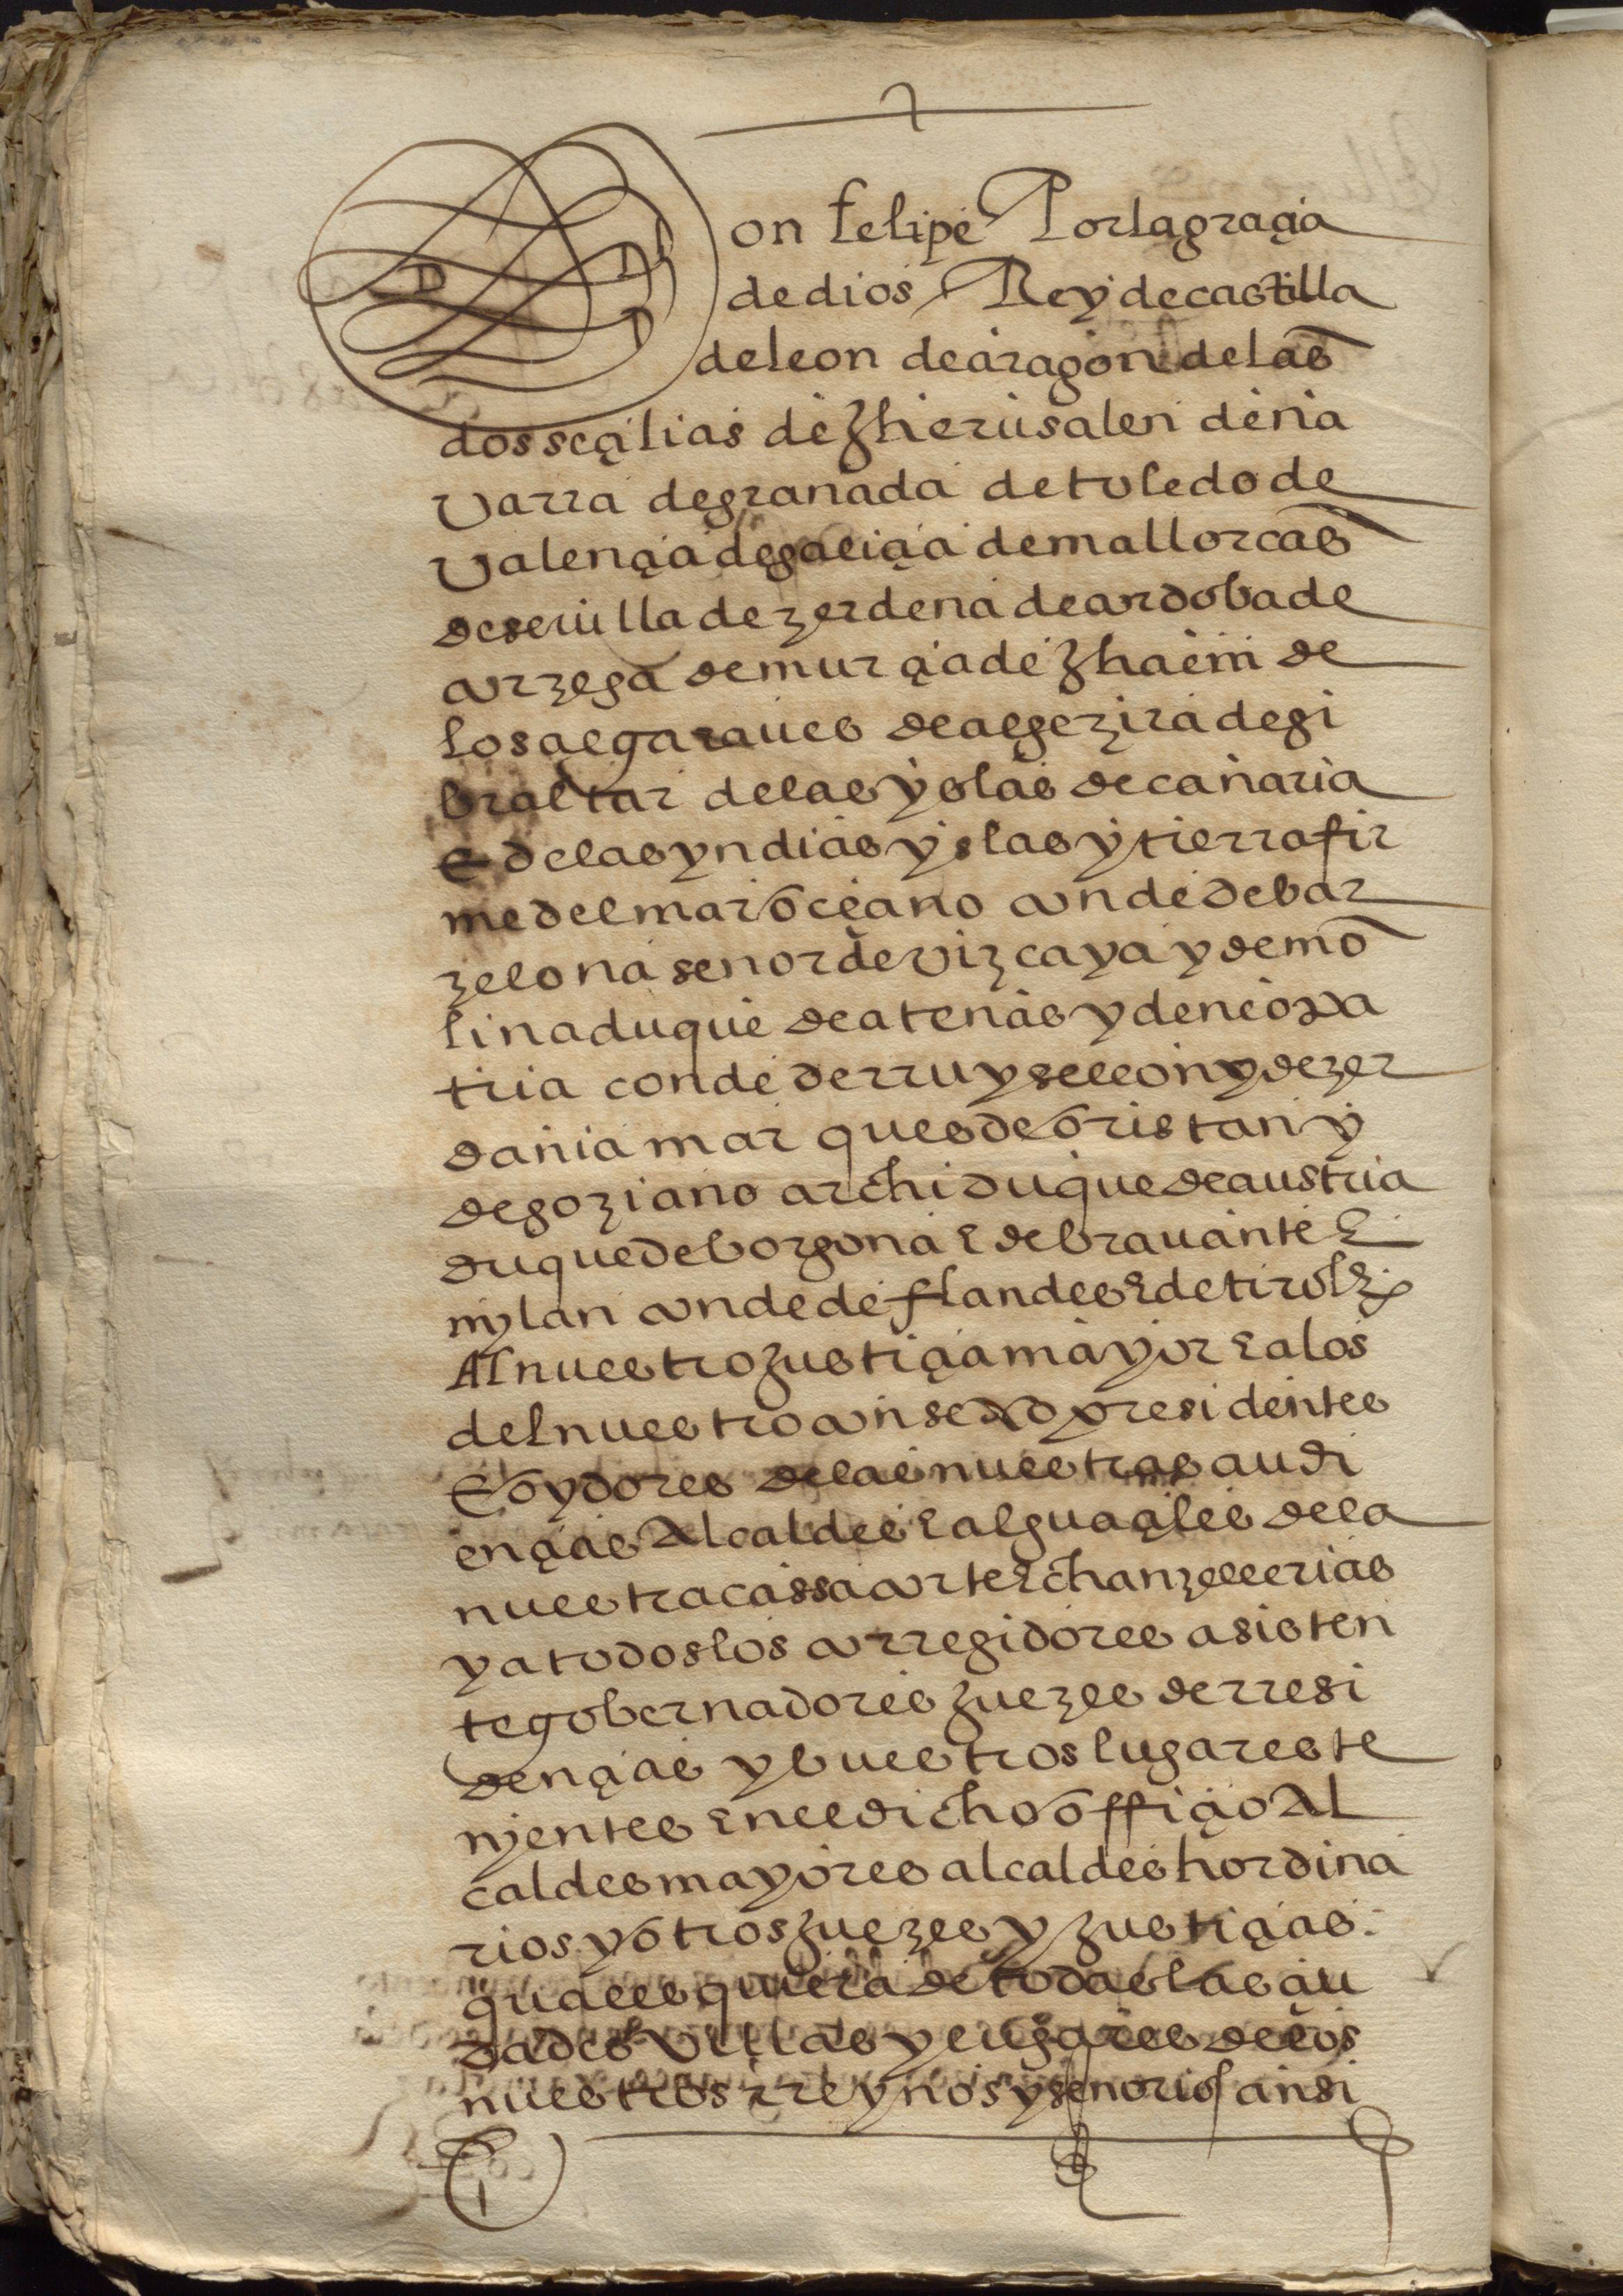 Don felipe Por la graçia
de dios Rey de castilla
de leon de aragon de las
dos seçilias de Jherusalen de na
varra de granada de toledo de
valençia de galiçia de mallorcas
de sevilla de zerdena de cordoba de
corzega de murçia de Jhaem de
los algaraues de algezira de gi
braltar de las yslas de canaria
E de las yndias yslas y tierra fir
me del mar oçeano conde de bar
zelona senor de vizcaya y de mo
lina duque de atenas y de neopa
tria conde de rruysellon y de zer
dania marques de oristan y
de goziano archiduque de austria
duque de borgona E de bravante E
mylan conde de flandes E de tirol Ex
Al nuestro justiçia mayor E a los
del nuestro consexo presidentes
E oydores de las nuestras audi
ençias Alcaldes E alguaçiles de la
nuestra cassa corte E chanzellerias
y a todos los corregidores asisten
te gobernadores juezes de rresi
dençias y buestros lugareste
nyentes En el dicho offiçio Al
caldes mayores alcaldes hordina
rios y otros juezes y justiçias
quales quiera de todas las çiu
dades villas y lugares de los
nuestros rreynos y senorios ansi
1